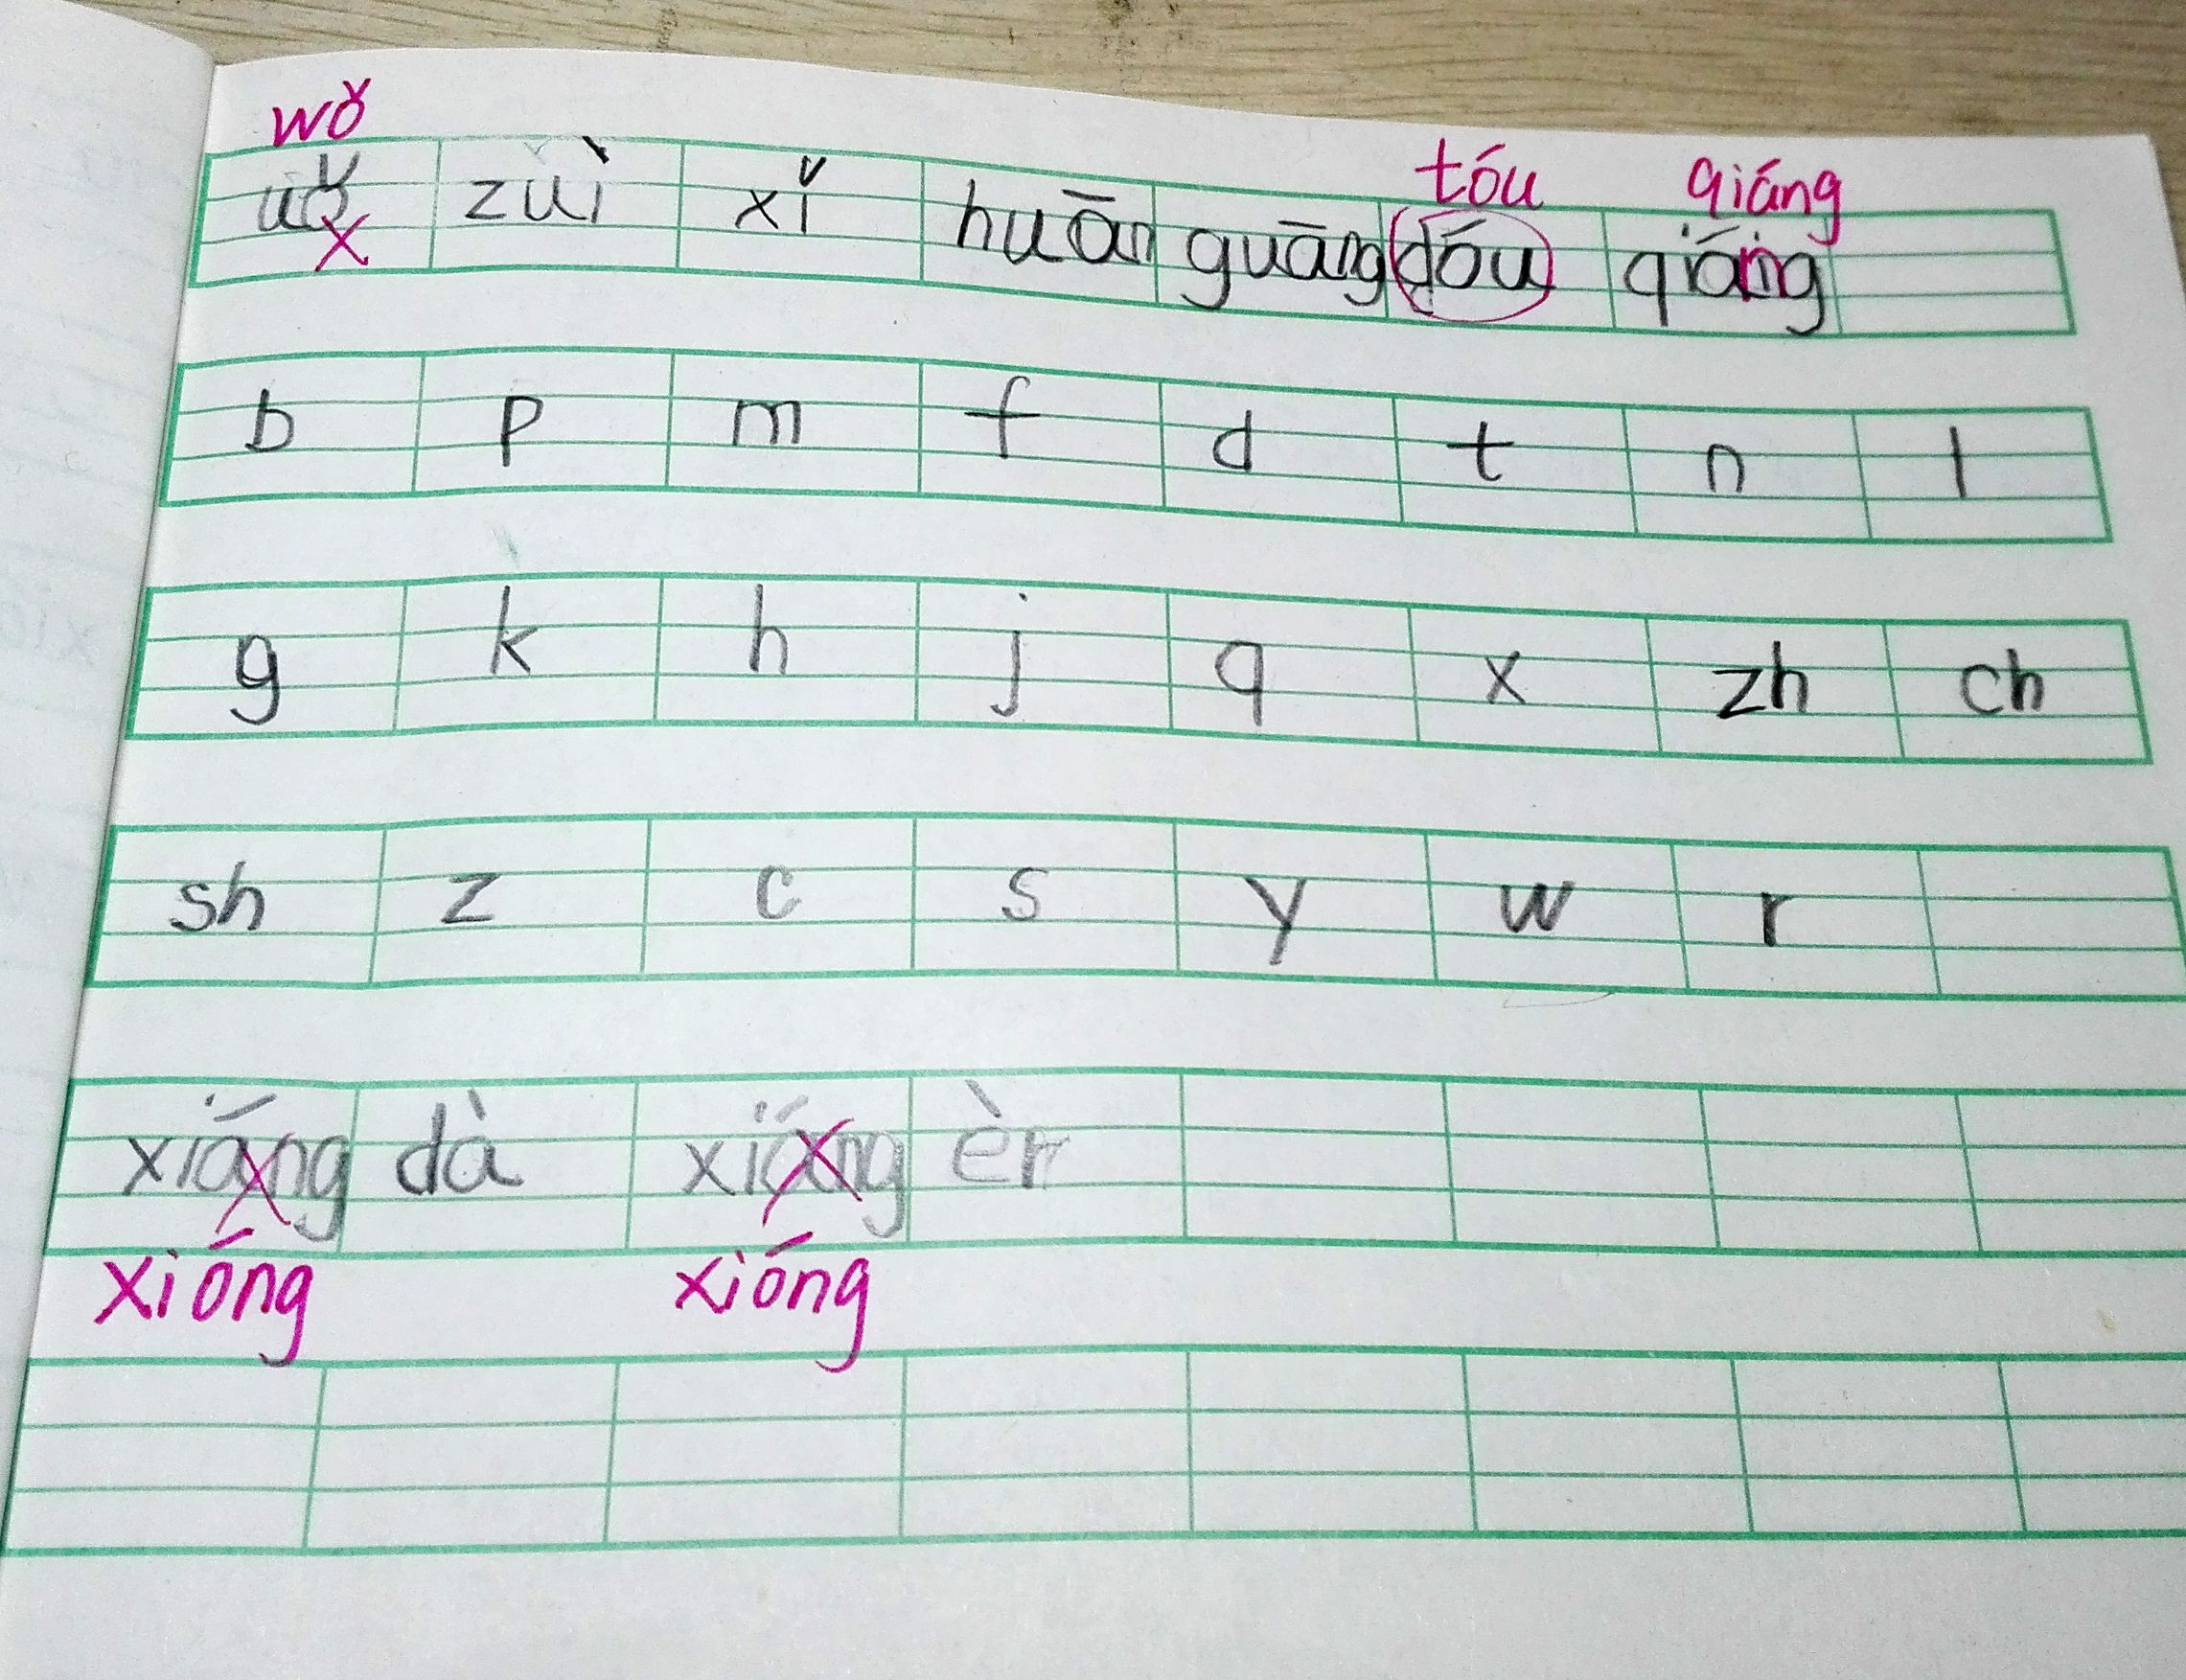 wǒ tóu qiáng
uǒ zuì xǐ huān guāng dóu qiáng
b p m f d t n l
g k h j q x zh ch
sh z c s y w r
xiáng dà xiáng èr
xióng xióng